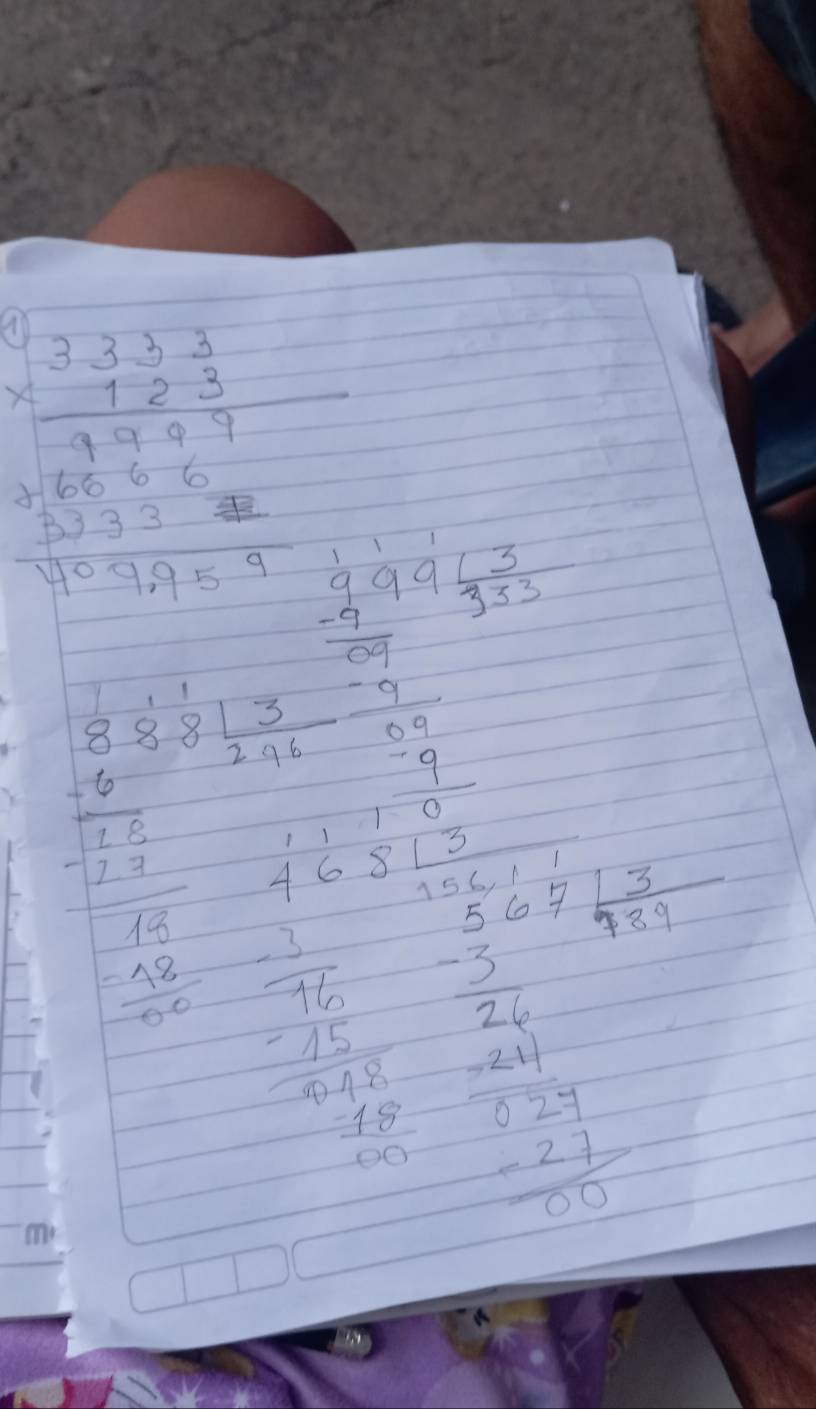 1
3333
x 123
9999
+6666
3333
409.959
1 1 1
999 3
333
-9
09
-9
09
-9
0
1 1 1
888 3
296
-6
28
-27
18
-18
00
1 1 1
468 3
156
-3
16
-15
018
-18
00
1 1
567 3
189
-3
26
-24
027
-27
00
m